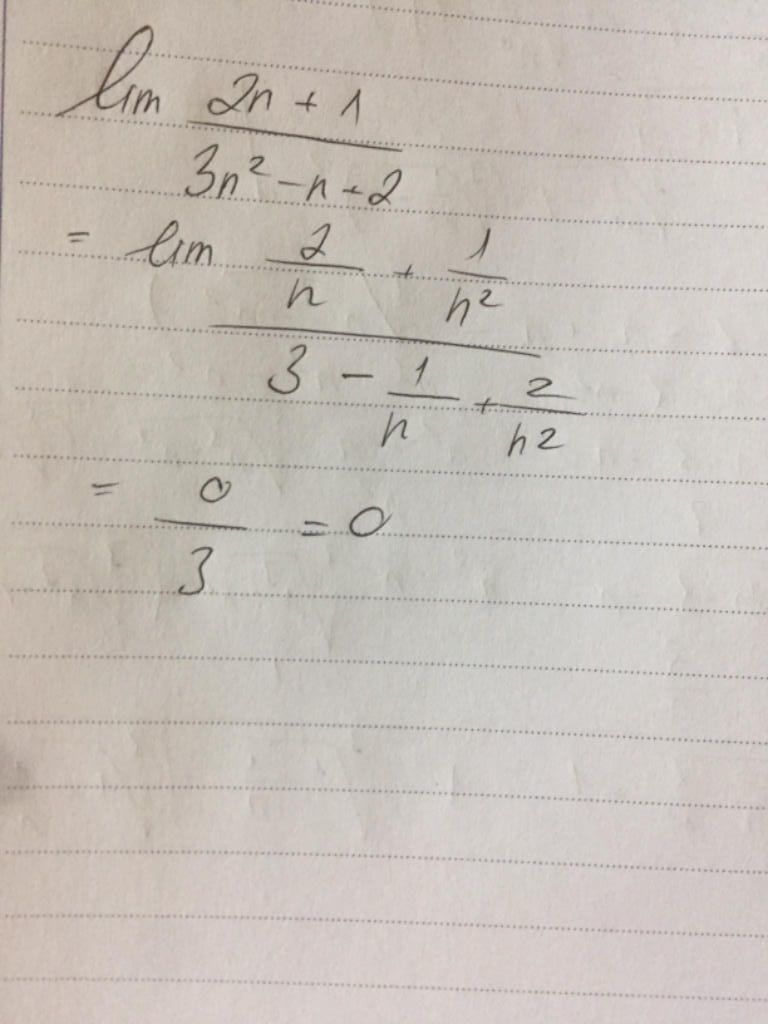 lim (2n + 1)/(3n² - n + 2)
= lim (2/n + 1/n²)/(3 - 1/n + 2/n²)
= 0/3 = 0